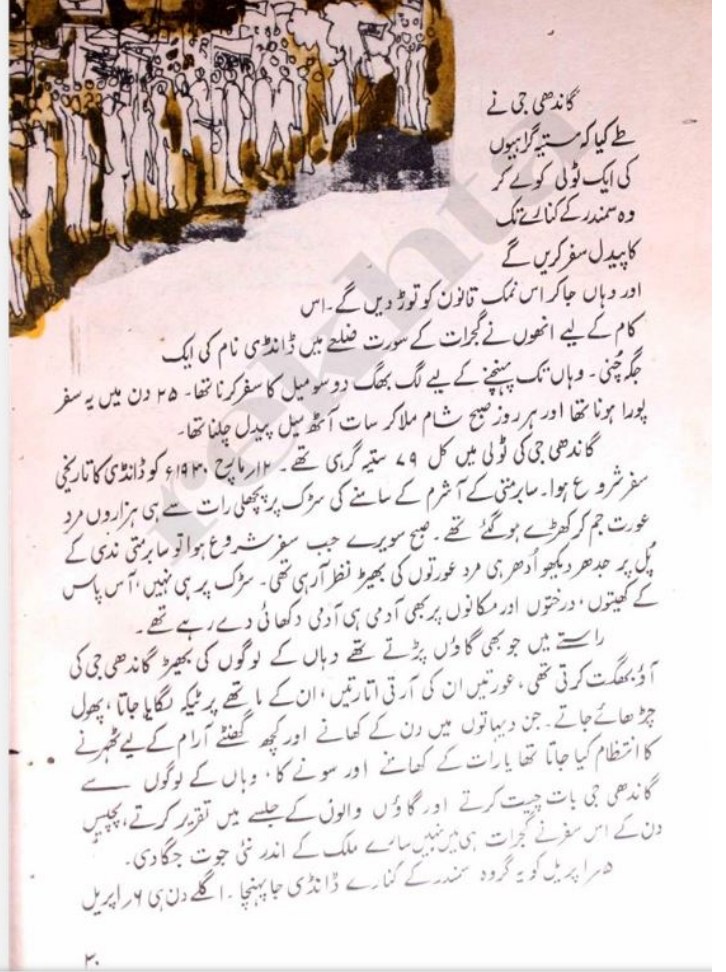 گاندھی جی نے
طے کیا کہ ستیہ گراہیوں
کی ایک ٹولی کو لے کر
وہ سمندر کے کنارے تک
کا پیدل سفر کریں گے
اور وہاں جا کر اس نمک قانون کو توڑ دیں گے۔ اس
کام کے لیے انھوں نے گجرات کے سورت ضلعے میں ڈانڈی نام کی ایک
جگہ چُنی۔ وہاں تک پہنچنے کے لیے لگ بھگ دو سو میل کا سفر کرنا تھا۔ ۲۵ دن میں یہ سفر
پورا ہونا تھا اور ہر روز صبح شام ملا کر سات آٹھ میل پیدل چلنا تھا۔
گاندھی جی کی ٹولی میں کل ۷۹ ستیہ گرہی تھے۔ ۱۲ مارچ ۱۹۳۰ء کو ڈانڈی کا تاریخی
سفر شروع ہوا۔ سابرمتی کے آشرم کے سامنے کی سڑک پر پچھلی رات سے ہی ہزاروں مرد
عورت جم کر کھڑے ہو گئے تھے۔ صبح سویرے جب سفر شروع ہوا تو سابرمتی ندی کے
پُل پر جدھر دیکھو اُدھر ہی مرد عورتوں کی بھیڑ نظر آ رہی تھی۔ سڑک پر ہی نہیں، آس پاس
کے کھیتوں، درختوں اور مکانوں پر بھی آدمی ہی آدمی دکھائی دے رہے تھے۔
راستے میں جو بھی گاؤں پڑتے تھے وہاں کے لوگوں کی بھیڑ گاندھی جی کی
آؤ بھگت کرتی تھی، عورتیں ان کی آرتی اتارتیں، ان کے ماتھے پر ٹیکہ لگایا جاتا، پھول
چڑھائے جاتے۔ جن دیہاتوں میں دن کے کھانے اور کچھ گھنٹے آرام کے لیے ٹھہرنے
کا انتظام کیا جاتا تھا یا رات کے کھانے اور سونے کا، وہاں کے لوگوں سے
گاندھی جی بات چیت کرتے اور گاؤں والوں کے جلسے میں تقریر کرتے، پچیس
دن کے اس سفر نے گجرات ہی میں نہیں سارے ملک کے اندر نئی جوت جگا دی۔
۵ اپریل کو یہ گروہ سمندر کے کنارے ڈانڈی جا پہنچا۔ اگلے دن ہی ۶ اپریل
۳۰
rekhta